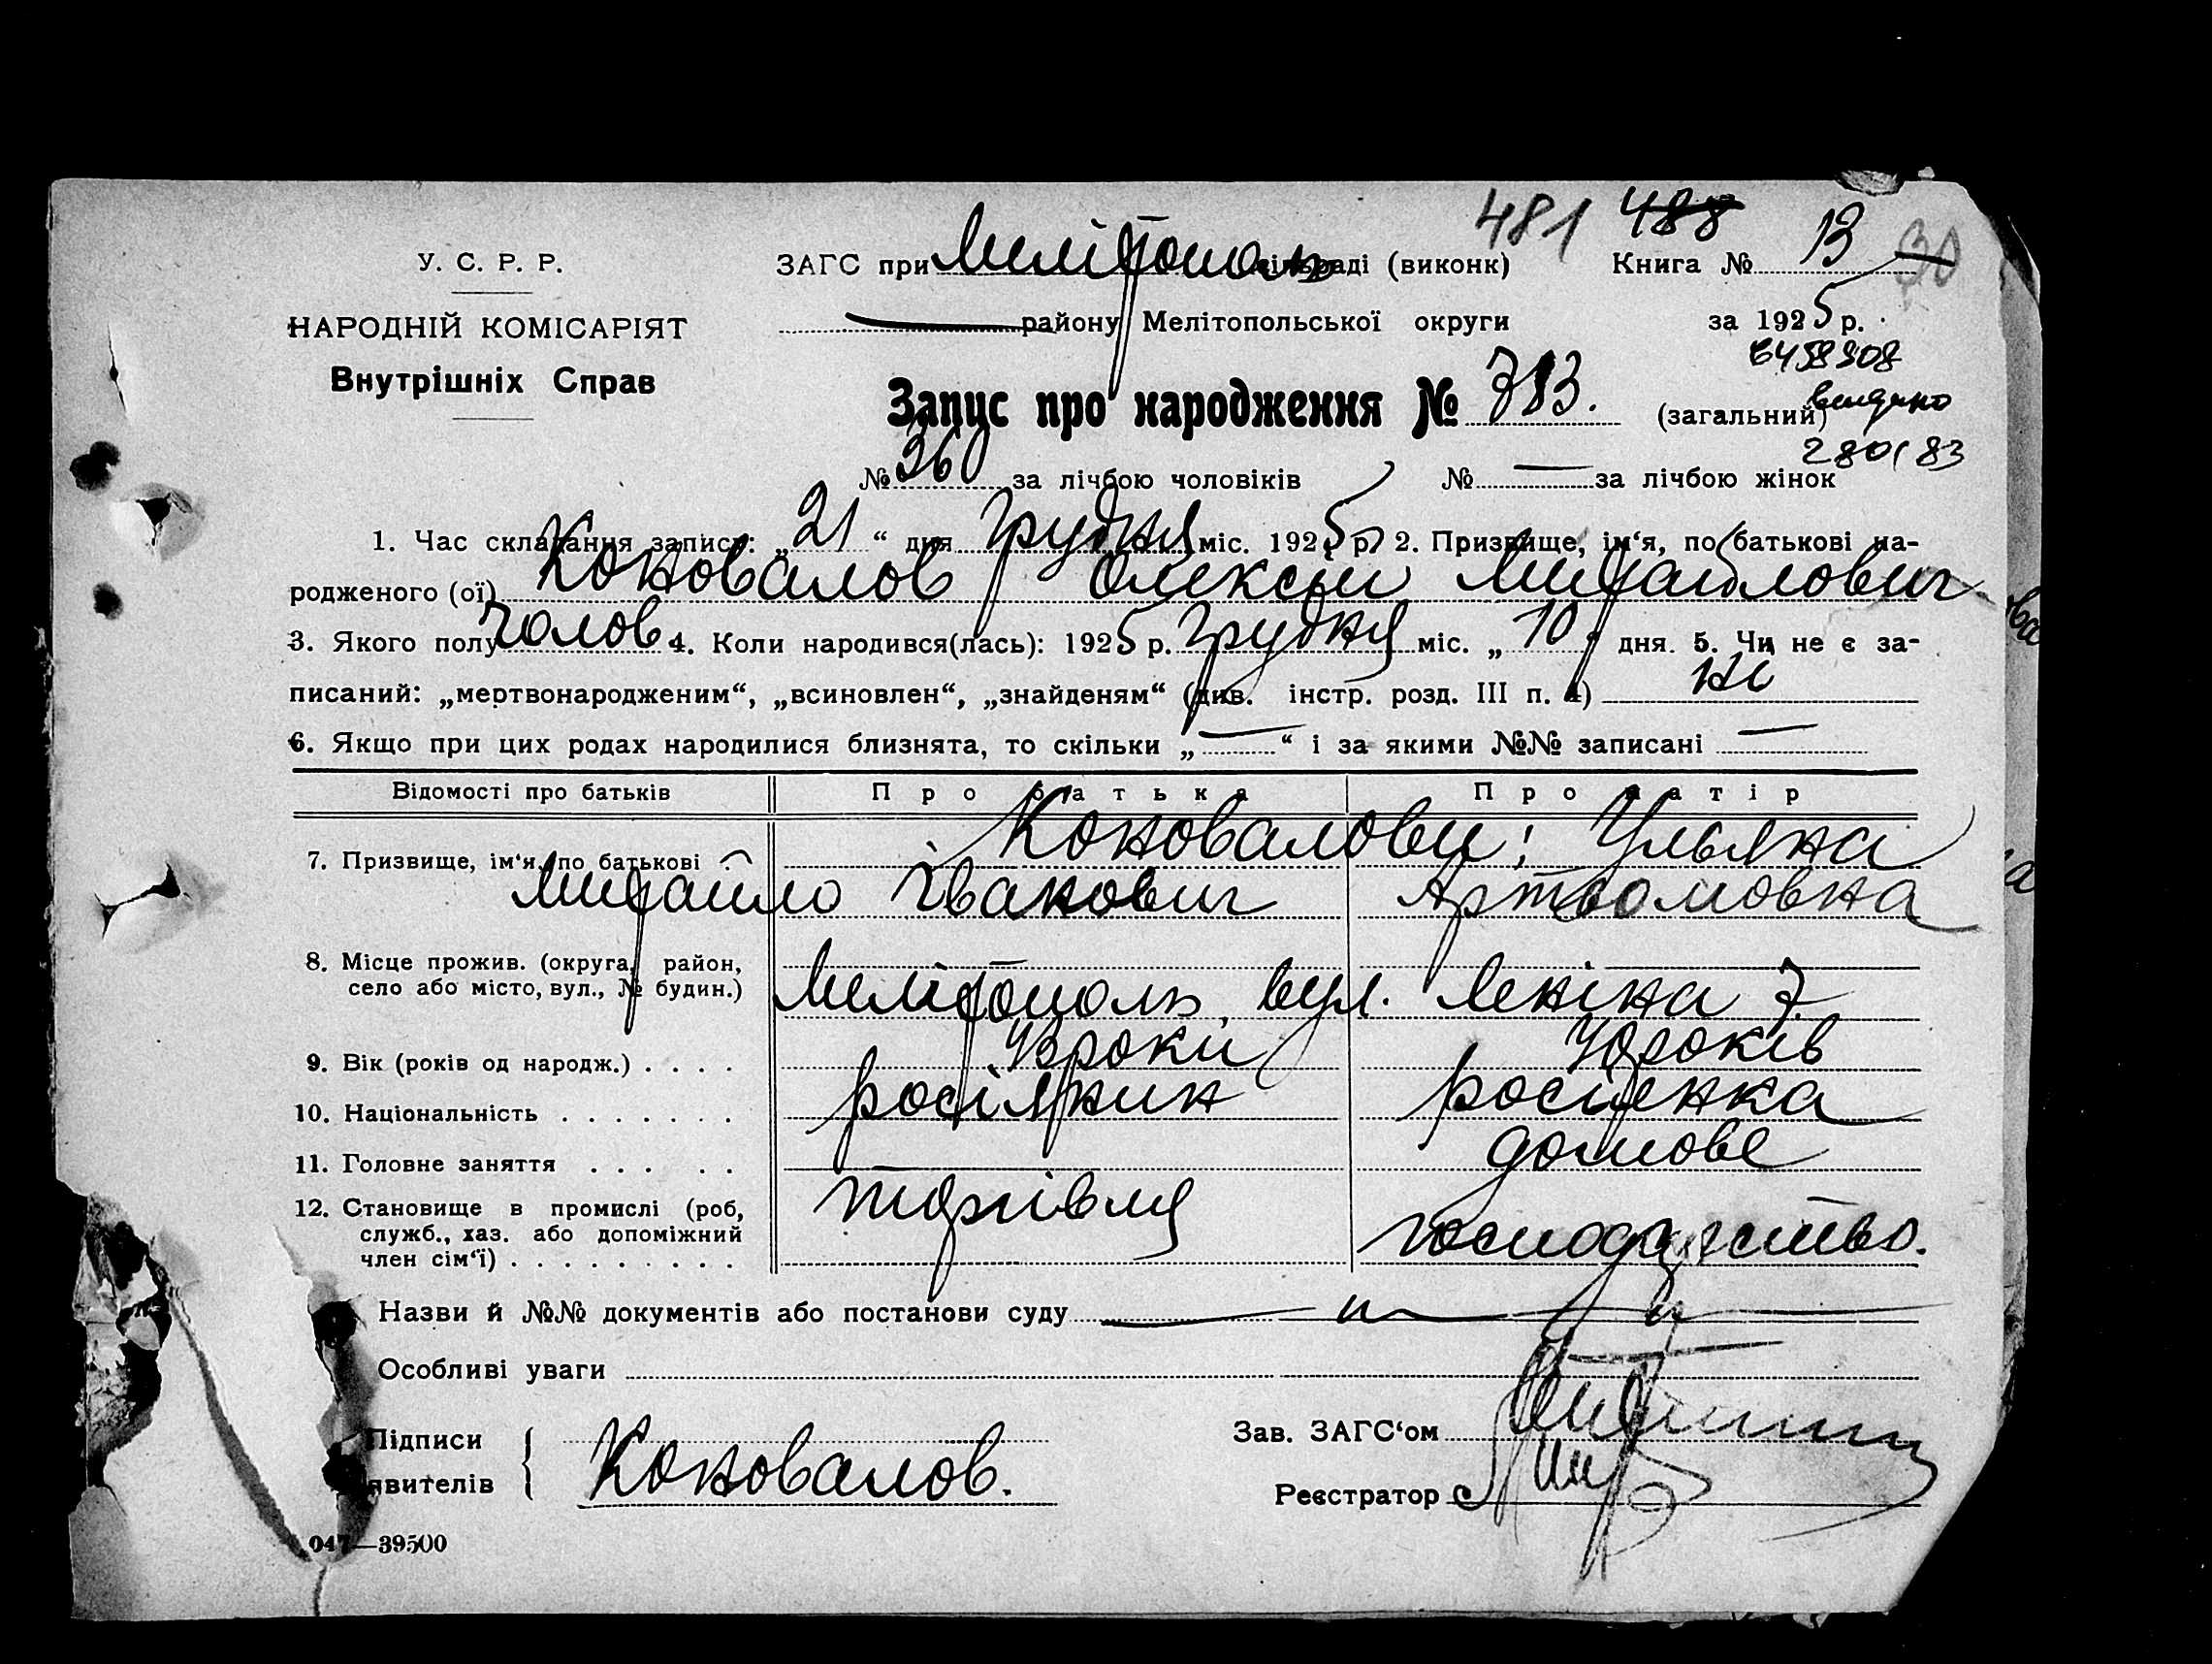 481 488
У. С. Р. Р. ЗАГС при Мелітополь сільраді (виконк) Книга № 13 30
НАРОДНІЙ КОМІСАРІЯТ району Мелітопольської округи за 1925 р.
Внутрішніх Справ
Запис про народження № 783. (загальний) видано
№ 360 за лічбою чоловіків № — за лічбою жінок
1. Час складання запису: „21“ дня Грудня міс. 1925 р. 2. Призвище, ім‘я, по батькові на-
родженого (ої) Коновалов Олексій Михайлович
3. Якого полу чолов 4. Коли народився(лась): 1925 р. Грудня міс. „10“ дня. 5. Чи не є за-
писаний: „мертвонародженим“, „всиновлен“, „знайденям“ (див. інстр. розд. III п. 4) ні
6. Якщо при цих родах народилися близнята, то скільки „—“ і за якими №№ записані —
Відомості про батьків Про батька Про матір
Коновалови: Ульяна
7. Призвище, ім‘я, по батькові
Михайло Іванович Артьомовна
8. Місце прожив. (округа, район,
село або місто, вул., № будин.) Мелітополь, вул. Леніна 7.
9. Вік (років од народж.) . . . . 43 роки 40 років
10. Національність . . . . . . . росіянин росіянка
11. Головне заняття . . . . . домове
12. Становище в промислі (роб, торгівля
служб., хаз. або допоміжний господарство.
член сім‘ї) . . . . . . . . .
Назви й №№ документів або постанови суду
Особливі уваги
Підписи Зав. ЗАГС‘ом
явителів Коновалов. Реєстратор
047—39500